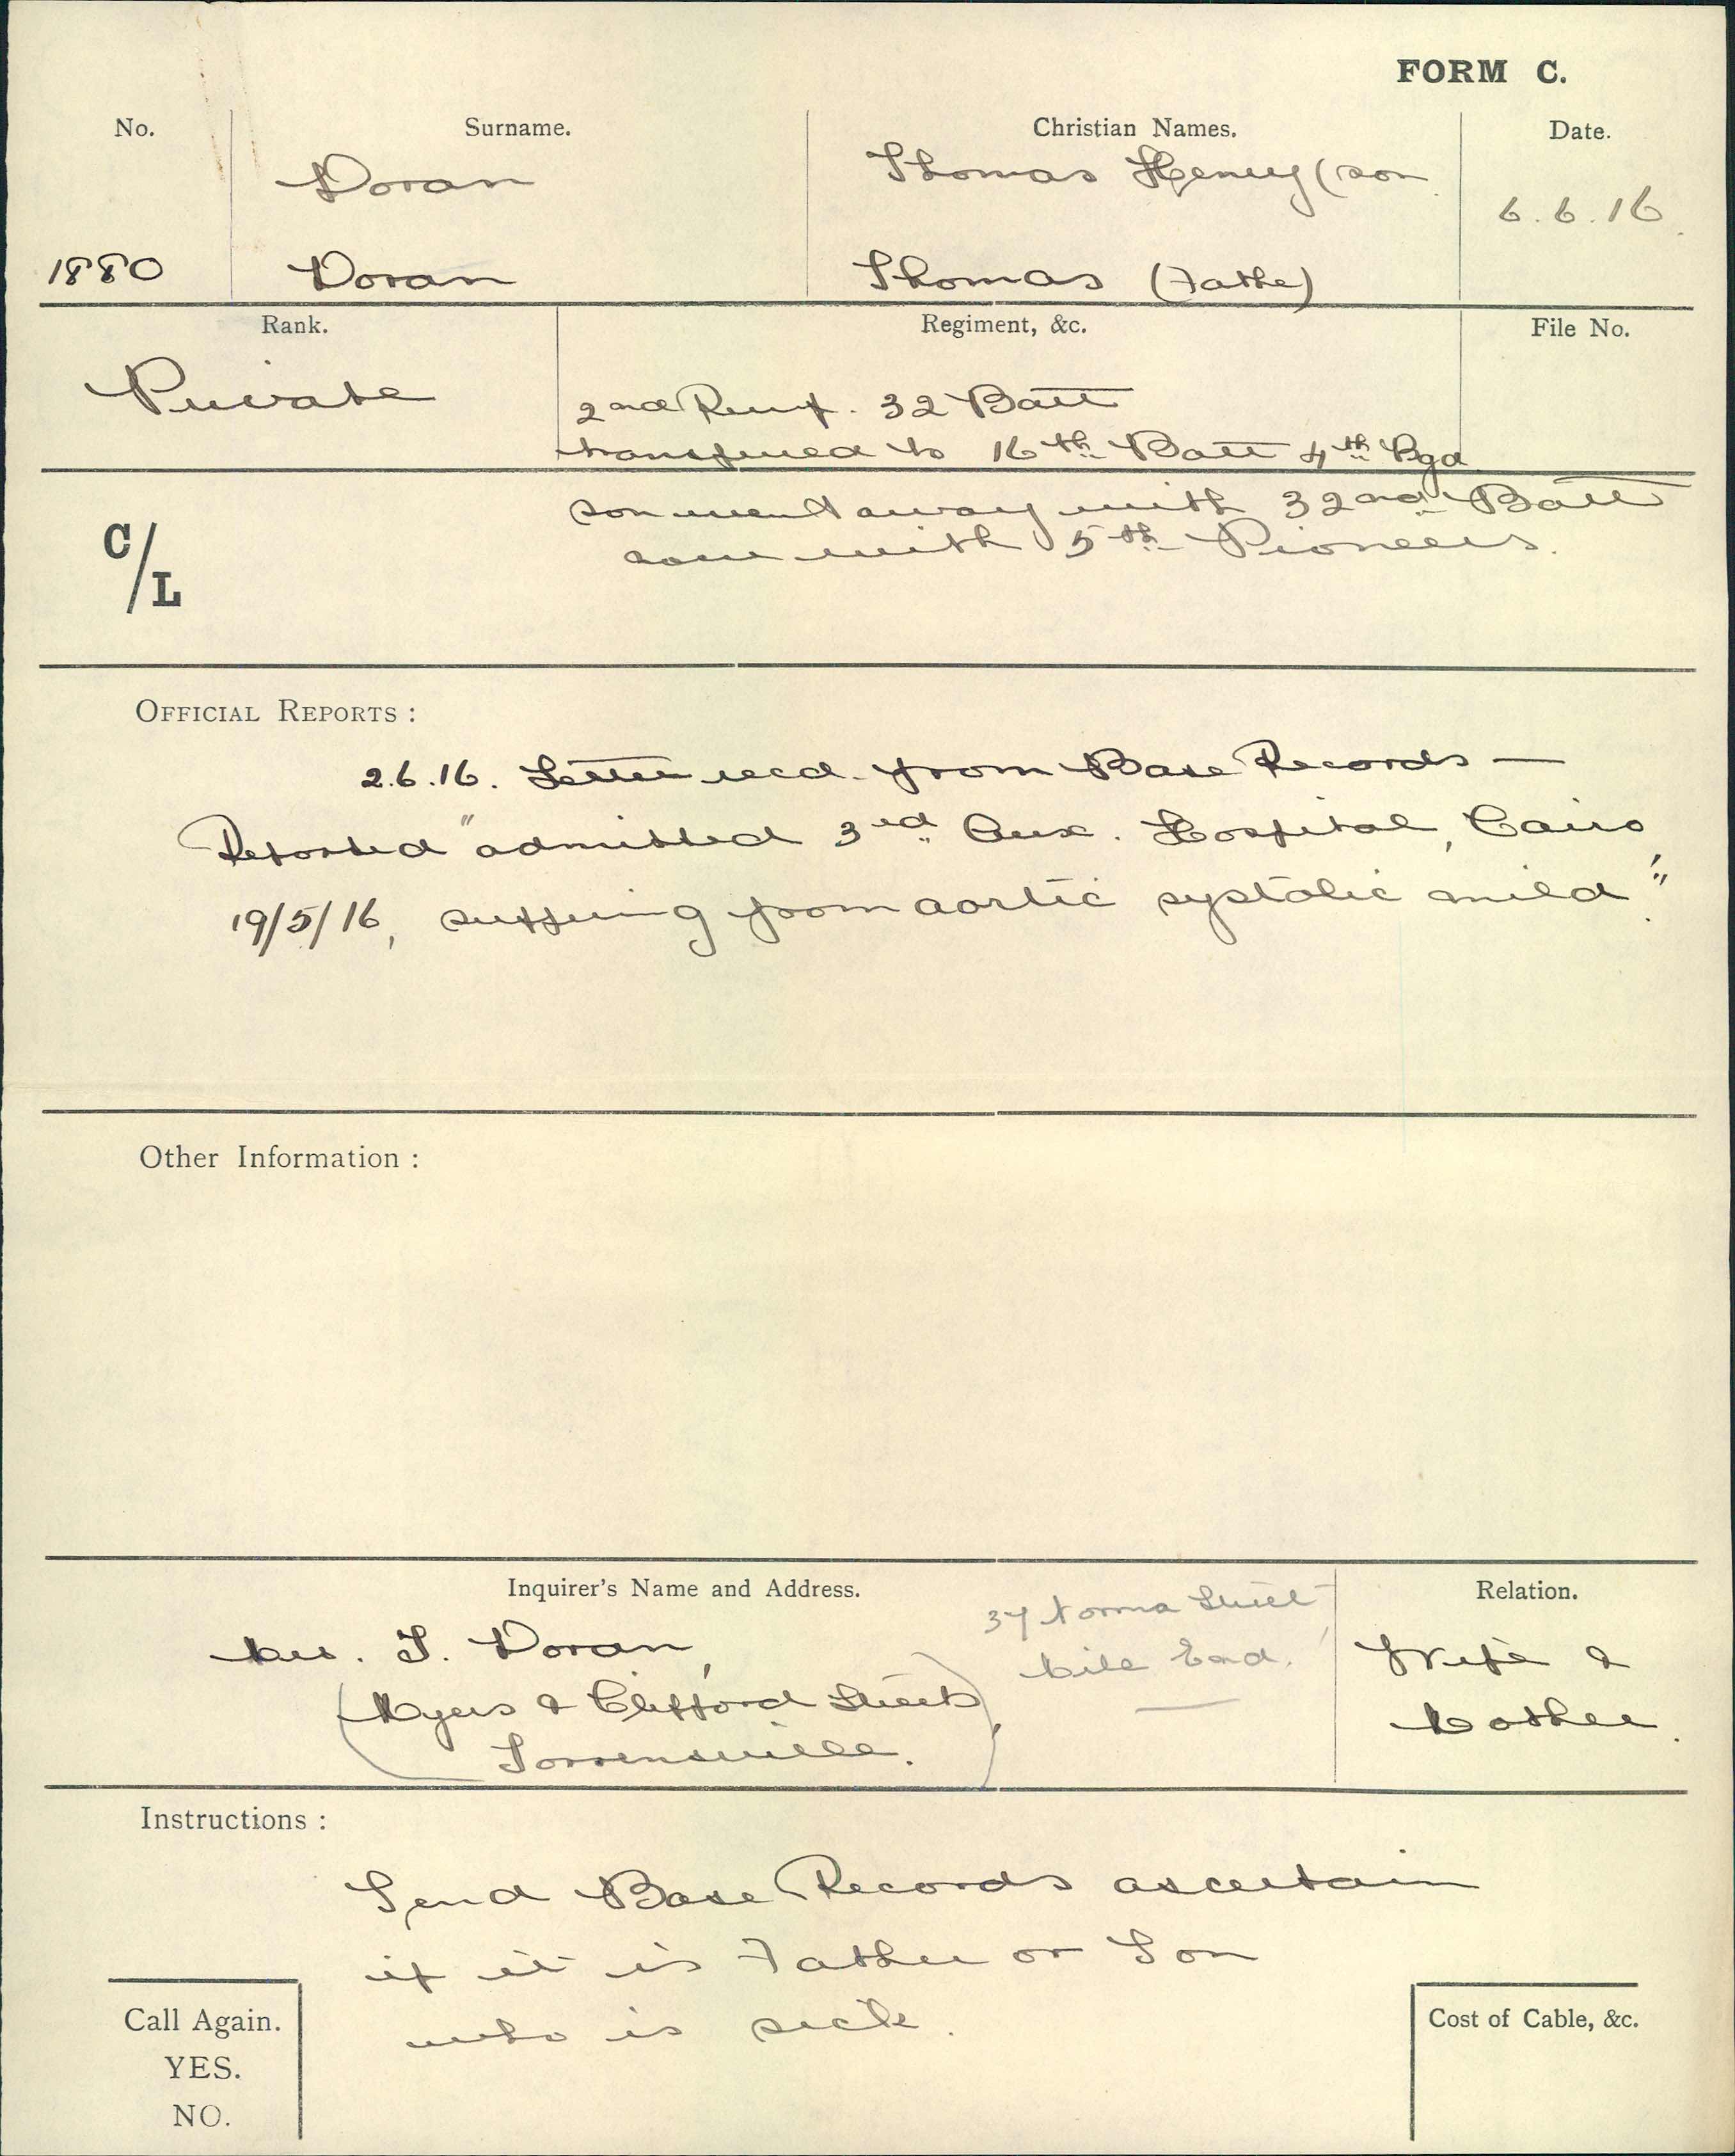 FORM C.
No. Surname. Christian Names. Date.
Doran Thomas Henry (son
6.6.16.
1880 Doran Thomas (Father)
Rank. Regiment, &c. File No.
Private 2nd Reinf. 32 Batt
transferred to 16th Batt 4th Bgd
son went away with 32nd Batt
C/L now with 5th Pioneers.
OFFICIAL REPORTS :
2.6.16. Letter recd. from Base Records —
Reported "admitted 3rd Aux. Hospital, Cairo,
19/5/16, suffering from aortic systolic mild".
Other Information :
Inquirer's Name and Address. Relation.
37 Norma Street
Mrs. T. Doran, Mile End. Wife &
(Myers & Clifford Streets Mother.
Torrensville.)
Instructions :
Send Base Records ascertain
if it is Father or Son
who is sick.
Call Again. Cost of Cable, &c.
YES.
NO.